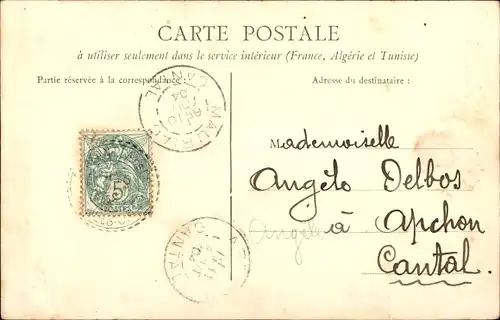 CARTE POSTALE
à utiliser seulement dans le service intérieur (France, Algérie et Tunisie)
Partie réservée à la correspondance :
Adresse du destinataire :
CANTAL
04
MAURIAC
5
Mademoiselle
Angélo Delbos
à Apchon
Angélo
Cantal.
CANTAL
04